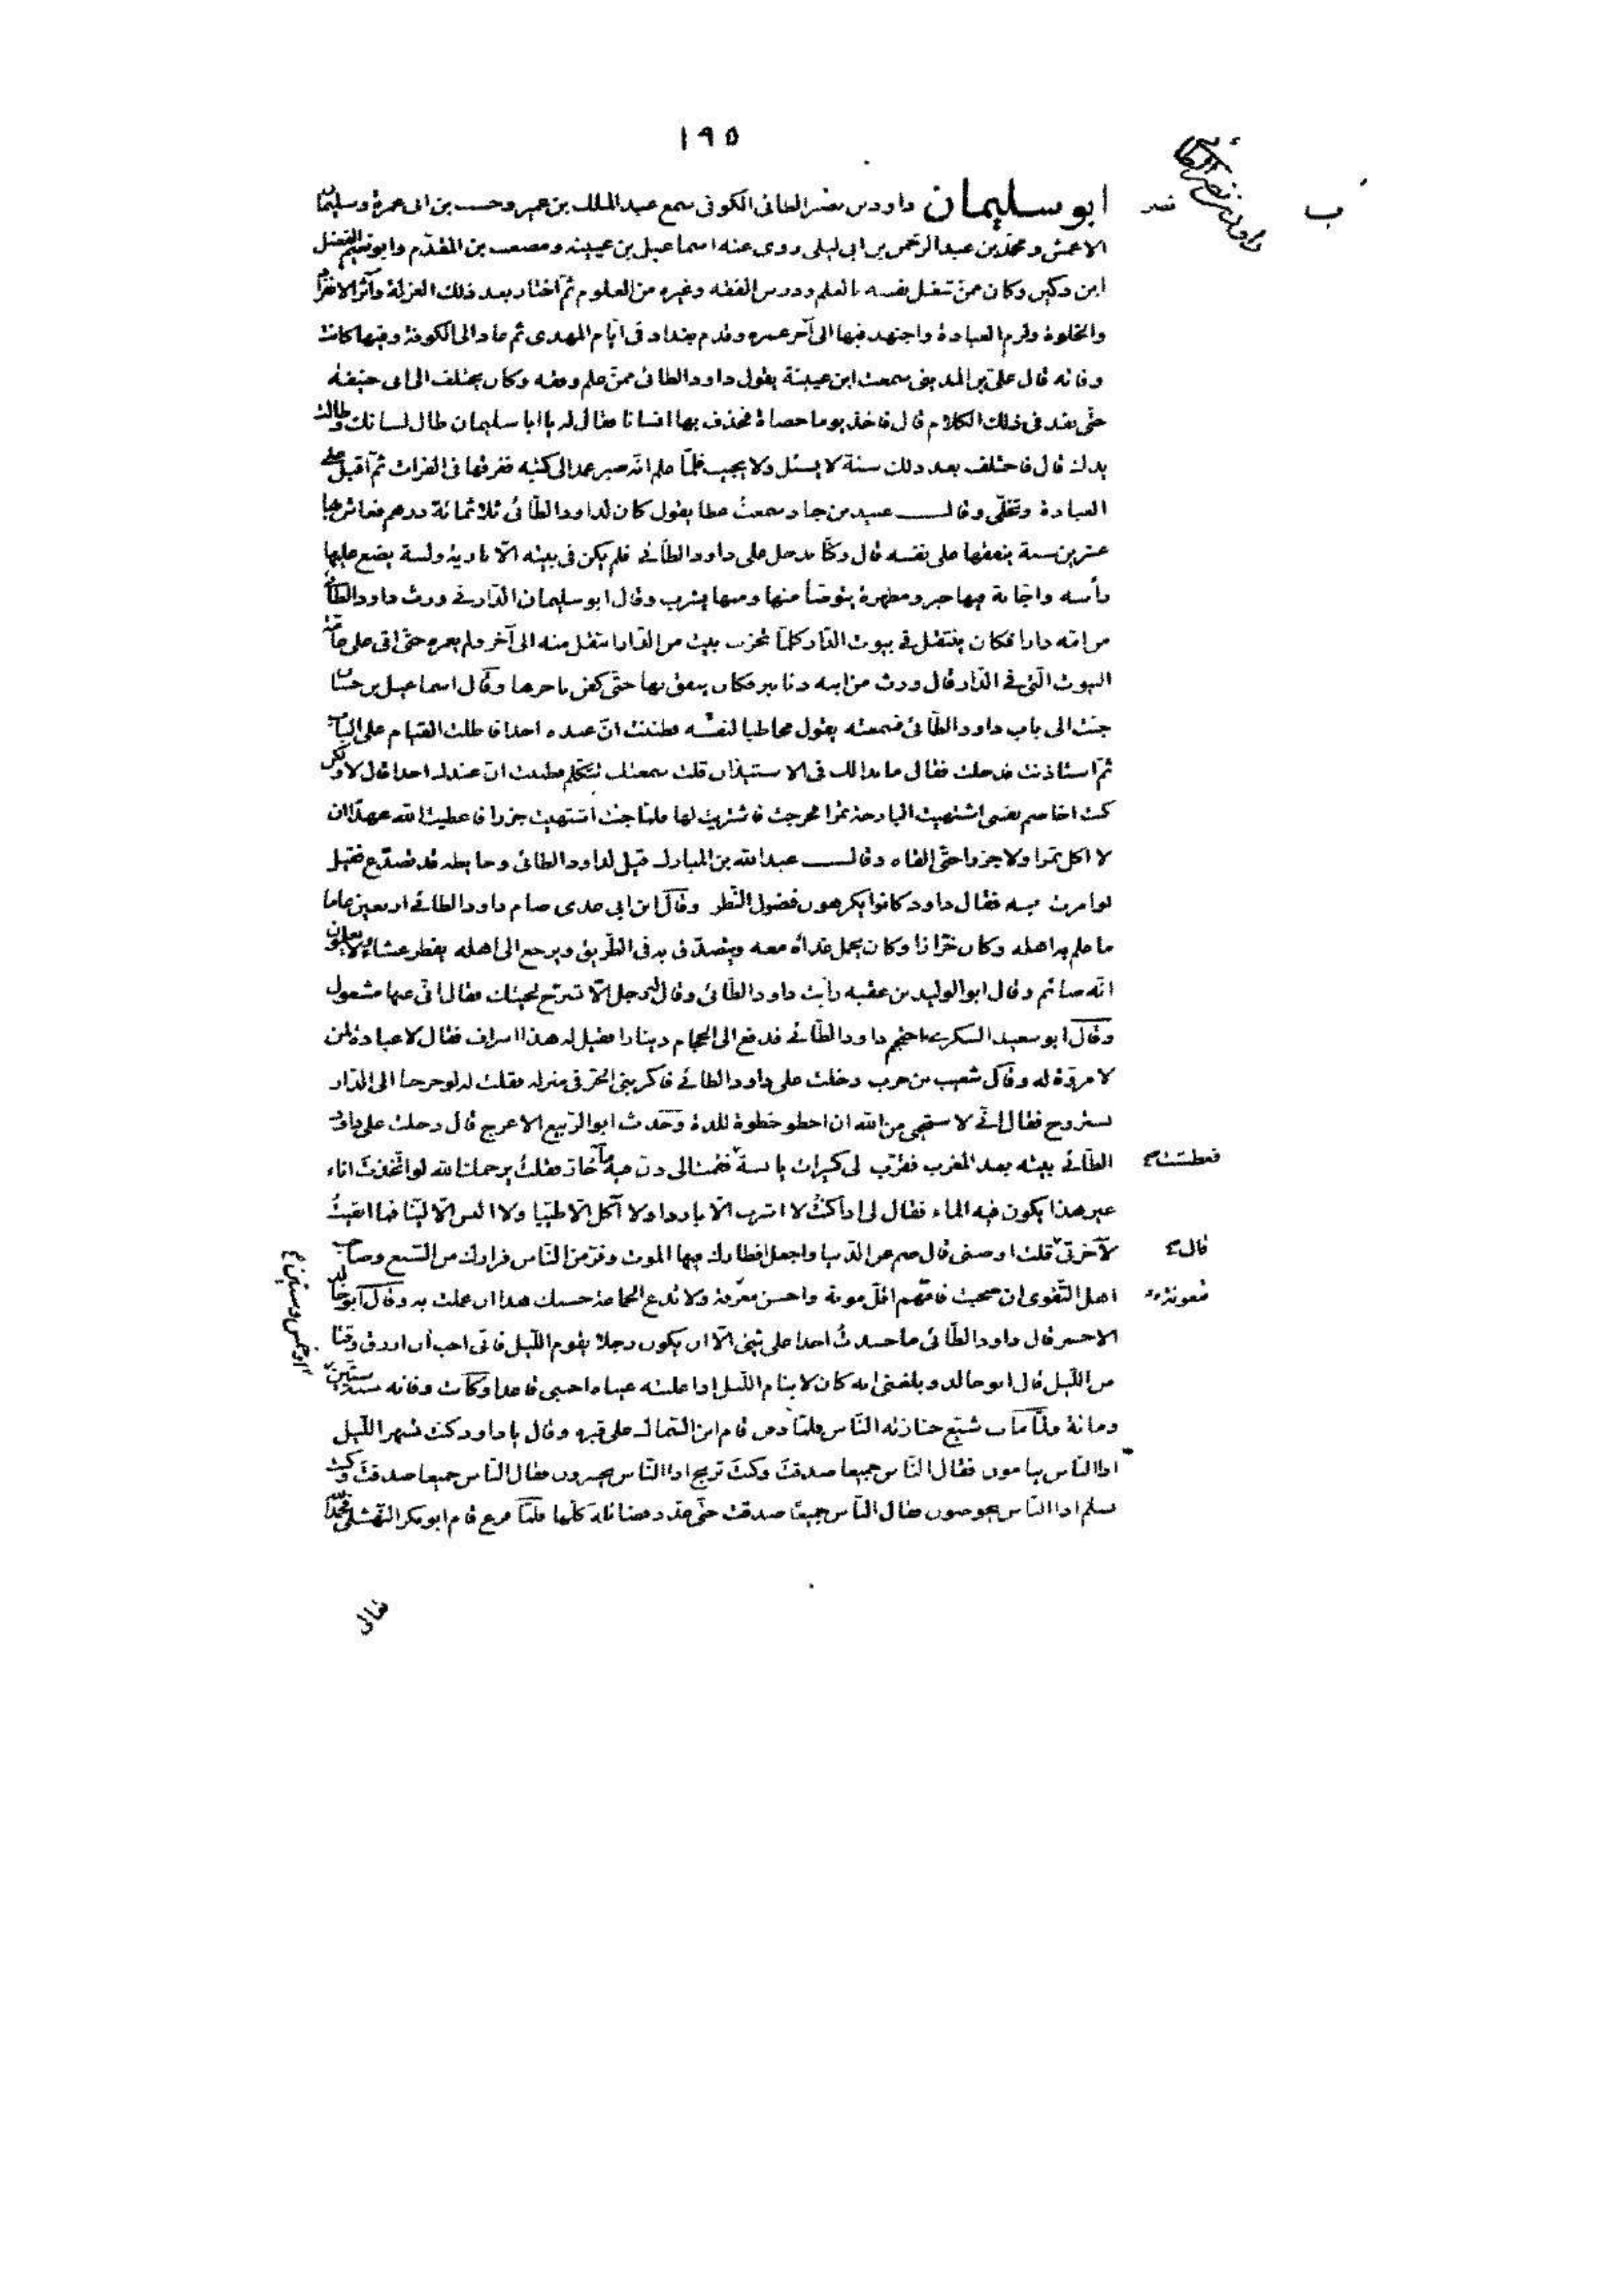 ١٩٥
داود بن نصير الطائي
ب
نصير
ابو سليمان داود بن نصير الطائى الكوفى سمع عبد الملك بن عمير وحبيب بن ابى عمرة وسليمان
الاعمش ومحمد بن عبد الرحمن بن ابى ليلى روى عنه اسماعيل بن عيينه ومصعب بن المقدّم وابو نعيم الفضل
ابن دكين وكان ممن شغل نفسه بالعلم ودرس الفقه وغيره من العلوم ثمّ اختار بعد ذلك العزلة وآثر الانفراد
والخلوة ولزم العبادة واجتهد فيها الى آخر عمره وقدم بغداد فى ايّام المهدى ثم عاد الى الكوفة وفيها كانت
وفاته قال على بن المدينى سمعت ابن عيينة يقول داود الطائى ممن علم وفقه وكان يختلف الى ابى حنيفة
حتّى نفد فى ذلك الكلام قال فاخذ يوما حصاة فحذف بها انسانا فقال له يا ابا سليمان طال لسانك وطالت
يدك قال فاختلف بعد ذلك سنة لا يسئل ولا يجيب فلمّا علم انّه صبر عمد الى كتبه فغرقها فى الفرات ثم اقبل على
العبادة وتخلّى وقال عبيد بن جناد سمعت عطا يقول كان لداود الطّائى ثلاثمائة درهم فعاش بها
عشرين سنة ينفقها على نفسه قال وكنّا ندخل على داود الطّائى فلم يكن فى بيته الّا بارية ولبنة يضع عليها
رأسه واجّانة فيها خبز ومطهرة يتوضأ منها ومنها يشرب وقال ابو سليمان الدّارنى ورث داود الطّائى
من امّه دارا فكان ينتقل فى بيوت الدّار كلّما تخرّب بيت من الدّار انتقل منه الى آخر ولم يعمره حتّى اتى على عامّة
البيوت الّتى فى الدّار قال وورث من ابيه دنانير فكان ينفق بها حتّى كفن بآخرها وقال اسماعيل بن حسان
جئت الى باب داود الطّائى فسمعته يقول مخاطبا لنفسه فظننت انّ عنده احدا فاطلت القيام على الباب
ثمّ استاذنت فدخلت فقال ما بدا لك فى الاستيذان قلت سمعتك تتكلّم فظننت انّ عندك احدا قال لا ولكن
كنت اخاصم نفسى اشتهيت البارحة تمرا فخرجت فاشتريت لها فلمّا جئت اشتهيت جزرا فاعطيت الله عهدا ان
لا اكل تمرا ولا جزرا حتّى القاه وقال عبد الله بن المبارك قيل لداود الطائى وحايطه قد تصدّع فقيل
لو امرت برمه فقال داود كانوا يكرهون فضول النّظر وقال ابن ابى عدى صام داود الطائى اربعين عاما
ما علم به اهله وكان خرّازا وكان يحمل غداه معه ويتصدّق به فى الطّريق ويرجع الى اهله يفطر عشاء لا يعلمون
انّه صائم وقال ابو الوليد بن عقبه رايت داود الطّائى وقال له رجل الّا تسرّح لحيتك فقال انّى عنها مشغول
وقال ابو سعيد السكرى احتجم داود الطّائى فدفع الى الحجام دينارا فقيل له هذا اسراف فقال لا عبادة لمن
لا مروّة له وقال شعيب بن حرب دخلت على داود الطائى فاكربنى الحر فى منزله فقلت له لو خرجنا الى الدّار
نستروح فقال انّى لا ستحيى من الله ان اخطو خطوة للذة وحدث ابو الربيع الاعرج قال دخلت على داود
الطّائى بيته بعد المغرب فقرّب لى كسيرات يابسة فقمت الى دن فيه ماء حار فقلت يرحمك الله لو اتخذت اناء
فعطشت
غير هذا يكون فيه الماء فقال لى اذا كنت لا اشرب الّا باردا ولا آكل الّا طيّبا ولا البس الّا ليّنا فما ابقيت
لآخرتى قلت اوصنى قال صم عن الدّنيا واجعل افطارك فيها الموت وفرّ من النّاس فرارك من السّبع وصاحب
قال
اهل التّقوى ان صحبت فانّهم اقلّ مونة واحسن معرفة ولا تدع الجماعة حسبك هذا ان عملت به وقال ابو خالد
معونة
الاحمر قال داود الطّائى ما حسدت احدا على شئ الّا ان يكون رجلا يقوم اللّيل فانّى احب ان ارزق وقتا
من اللّيل قال ابو خالد وبلغنى انه كان لا ينام اللّيل اذا غلبته عيناه احتبى قاعدا وكانت وفاته سنة ستّين
او خمس وستين
ومائة ولمّا مات شيّع جنازته النّاس فلمّا دفن قام ابن السّماك على قبره وقال يا داود كنت تسهر اللّيل
اذا النّاس ينامون فقال النّاس جميعا صدقت وكنت تربح اذا النّاس يخسرون فقال النّاس جميعا صدقت وكنت
تسلم اذا النّاس يخوضون فقال النّاس جميعا صدقت حتّى عدّد فضائله كلّها فلمّا فرغ قام ابو بكر النّهشلى فحمد
تعالى